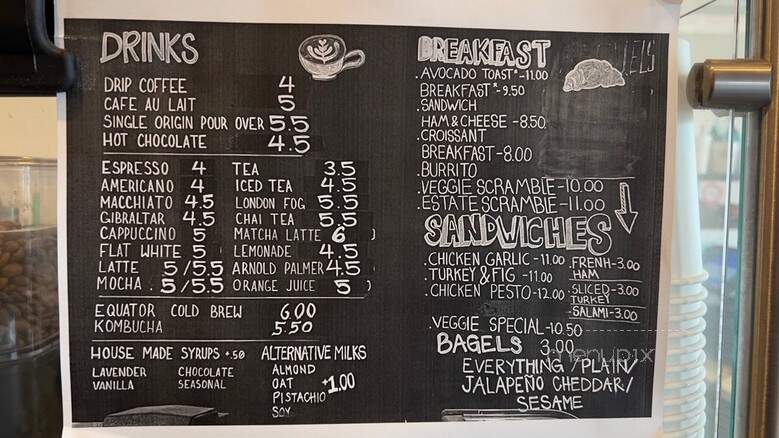 DRINKS
DRIP COFFEE 4
CAFE AU LAIT 5
SINGLE ORIGIN POUR OVER 5.5
HOT CHOCOLATE 4.5
ESPRESSO 4
AMERICANO 4
MACCHIATO 4.5
GIBRALTAR 4.5
CAPPUCCINO 5
FLAT WHITE 5
LATTE 5/5.5
MOCHA . 5/5.5
TEA 3.5
ICED TEA 4.5
LONDON FOG 5.5
CHAI TEA 5.5
MATCHA LATTE 6
LEMONADE 4.5
ARNOLD PALMER 4.5
ORANGE JUICE 5
EQUATOR COLD BREW 6.00
KOMBUCHA 5.50
HOUSE MADE SYRUPS +.50
LAVENDER CHOCOLATE
VANILLA SEASONAL
ALTERNATIVE MILKS
ALMOND
OAT
PISTACHIO +1.00
SOY
BREAKFAST
.AVOCADO TOAST*-11.00
BREAKFAST*-9.50
.SANDWICH
HAM & CHEESE -8.50
.CROISSANT
BREAKFAST-8.00
.BURRITO
.VEGGIE SCRAMBIE-10.00
.ESTATE SCRAMBIE-11.00
SANDWICHES
.CHICKEN GARLIC -11.00
.TURKEY & FIG -11.00
.CHICKEN PESTO-12.00
.VEGGIE SPECIAL-10.50
FRENH-3.00
HAM
.SLICED-3.00
TURKEY
.SALAMI-3.00
BAGELS 3.00
EVERYTHING/PLAIN/
JALAPEÑO CHEDDAR/
SESAME
menupix